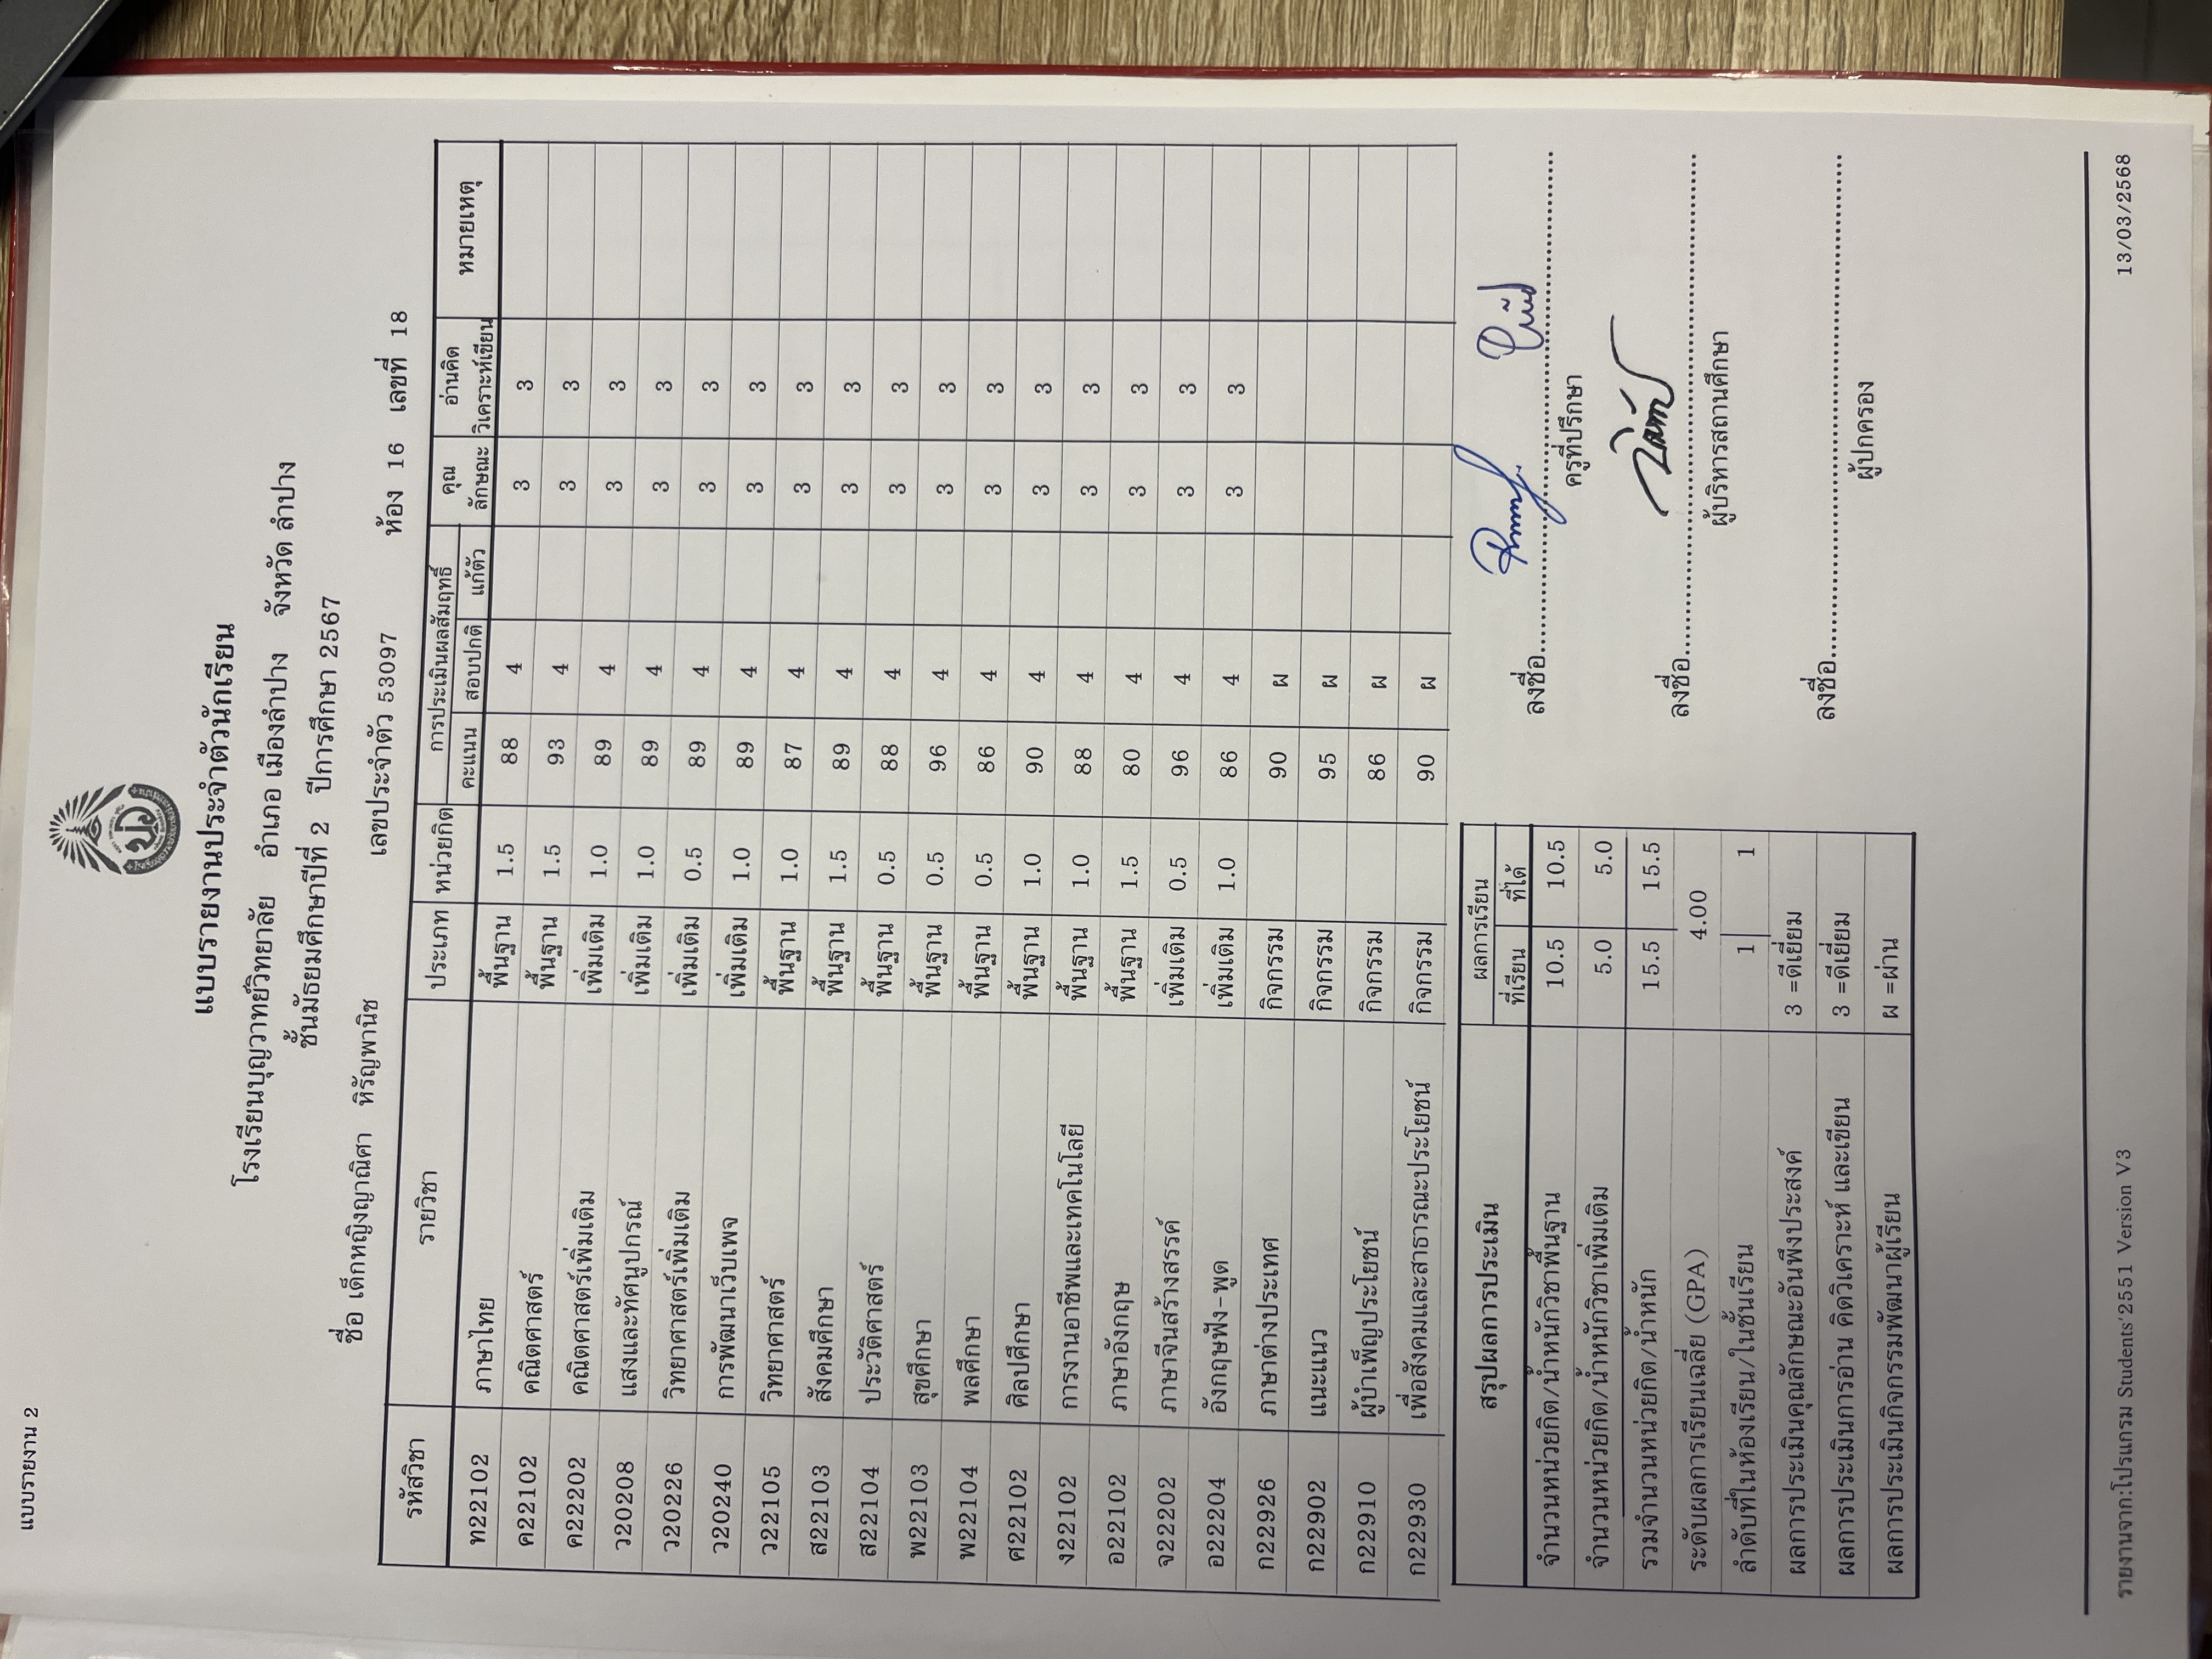 แบบรายงาน 2
แบบรายงานประจำตัวนักเรียน
โรงเรียนบุญวาทย์วิทยาลัย อำเภอ เมืองลำปาง จังหวัด ลำปาง
ชั้นมัธยมศึกษาปีที่ 2 ปีการศึกษา 2567
ชื่อ เด็กหญิงญาณิศา หิรัญพานิช เลขประจำตัว 53097 ห้อง 16 เลขที่ 18
รหัสวิชา รายวิชา ประเภท หน่วยกิต การประเมินผลสัมฤทธิ์ คุณลักษณะ อ่านคิดวิเคราะห์เขียน หมายเหตุ
คะแนน สอบปกติ แก้ตัว
ท22102 ภาษาไทย พื้นฐาน 1.5 88 4 3 3
ค22102 คณิตศาสตร์ พื้นฐาน 1.5 93 4 3 3
ค22202 คณิตศาสตร์เพิ่มเติม เพิ่มเติม 1.0 89 4 3 3
ว20208 แสงและทัศนูปกรณ์ เพิ่มเติม 1.0 89 4 3 3
ว20226 วิทยาศาสตร์เพิ่มเติม เพิ่มเติม 0.5 89 4 3 3
ว20240 การพัฒนาเว็บเพจ เพิ่มเติม 1.0 89 4 3 3
ว22105 วิทยาศาสตร์ พื้นฐาน 1.0 87 4 3 3
ส22103 สังคมศึกษา พื้นฐาน 1.5 89 4 3 3
ส22104 ประวัติศาสตร์ พื้นฐาน 0.5 88 4 3 3
พ22103 สุขศึกษา พื้นฐาน 0.5 96 4 3 3
พ22104 พลศึกษา พื้นฐาน 0.5 86 4 3 3
ศ22102 ศิลปศึกษา พื้นฐาน 1.0 90 4 3 3
ง22102 การงานอาชีพและเทคโนโลยี พื้นฐาน 1.0 88 4 3 3
อ22102 ภาษาอังกฤษ พื้นฐาน 1.5 80 4 3 3
จ22202 ภาษาจีนสร้างสรรค์ เพิ่มเติม 0.5 96 4 3 3
อ22204 อังกฤษฟัง-พูด เพิ่มเติม 1.0 86 4 3 3
ก22926 ภาษาต่างประเทศ กิจกรรม 90 ผ
ก22902 แนะแนว กิจกรรม 95 ผ
ก22910 ผู้บำเพ็ญประโยชน์ กิจกรรม 86 ผ
ก22930 เพื่อสังคมและสาธารณะประโยชน์ กิจกรรม 90 ผ
สรุปผลการประเมิน ผลการเรียน
ที่เรียน ที่ได้
จำนวนหน่วยกิต/น้ำหนักวิชาพื้นฐาน 10.5 10.5
จำนวนหน่วยกิต/น้ำหนักวิชาเพิ่มเติม 5.0 5.0
รวมจำนวนหน่วยกิต/น้ำหนัก 15.5 15.5
ระดับผลการเรียนเฉลี่ย (GPA) 4.00
ลำดับที่ในห้องเรียน/ในชั้นเรียน 1 1
ผลการประเมินคุณลักษณะอันพึงประสงค์ 3 =ดีเยี่ยม
ผลการประเมินการอ่าน คิดวิเคราะห์ และเขียน 3 =ดีเยี่ยม
ผลการประเมินกิจกรรมพัฒนาผู้เรียน ผ =ผ่าน
ลงชื่อ
ครูที่ปรึกษา
ลงชื่อ
ผู้บริหารสถานศึกษา
ลงชื่อ
ผู้ปกครอง
รายงานจาก:โปรแกรม Students'2551 Version V3 13/03/2568